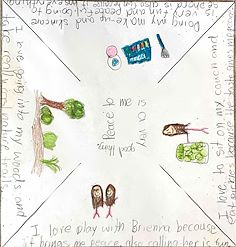 Doing my make-up and skincare
is very fun and peaceful. going to
sephora is also
I love to sit on my couch and
eat pickles because the
I love play with Brienna because
it brings me peace, also calling her is fun.
I love going into my woods and
take walks on nature trails.
Peace to me is
very
good things